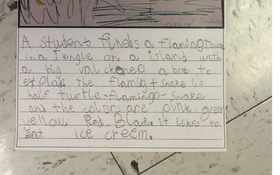 A student finds a flamingo
in a jungle on a island with
a big valckened a bot to
exPlod the flamin + snake is
half turtle-flamingo-snake
and the colors are pink, green
yellow, Red, Black it likes to
Eat ice creem.